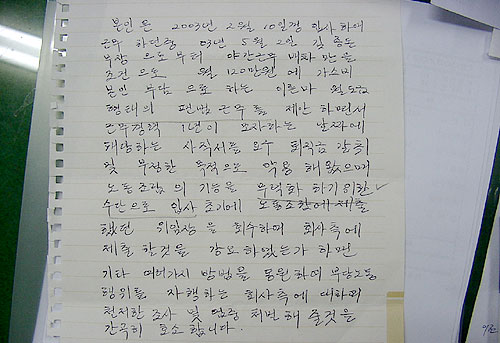 본인은 2003년 2월 10일경 입사하여
근무 하던중 03년 5월 2일 김 종은
부장 으로 부터 야간근무 배차 만을
조건으로 월 120만원 에 가스비
본인 부담 으로 하는 이른바 월급
형태의 편법 근무를 제안 하면서
근무경력 1년이 모자라는 날짜에
해당하는 사직서를 요구 퇴직금 갈취
및 부정한 목적으로 악용 해 왔으며
노동조합 의 기능을 무력화 하기위한
수단으로 입사 초기에 노동조합에 제출
했던 위임장 을 회수하여 회사측에
제출 할것을 강요 하였는가 하면
기타 여러가지 방법을 동원 하여 부당노동
행위를 자행하는 회사측에 대하여
철저한 조사 및 엄중 처벌 해 줄것을
간곡히 호소 합니다.